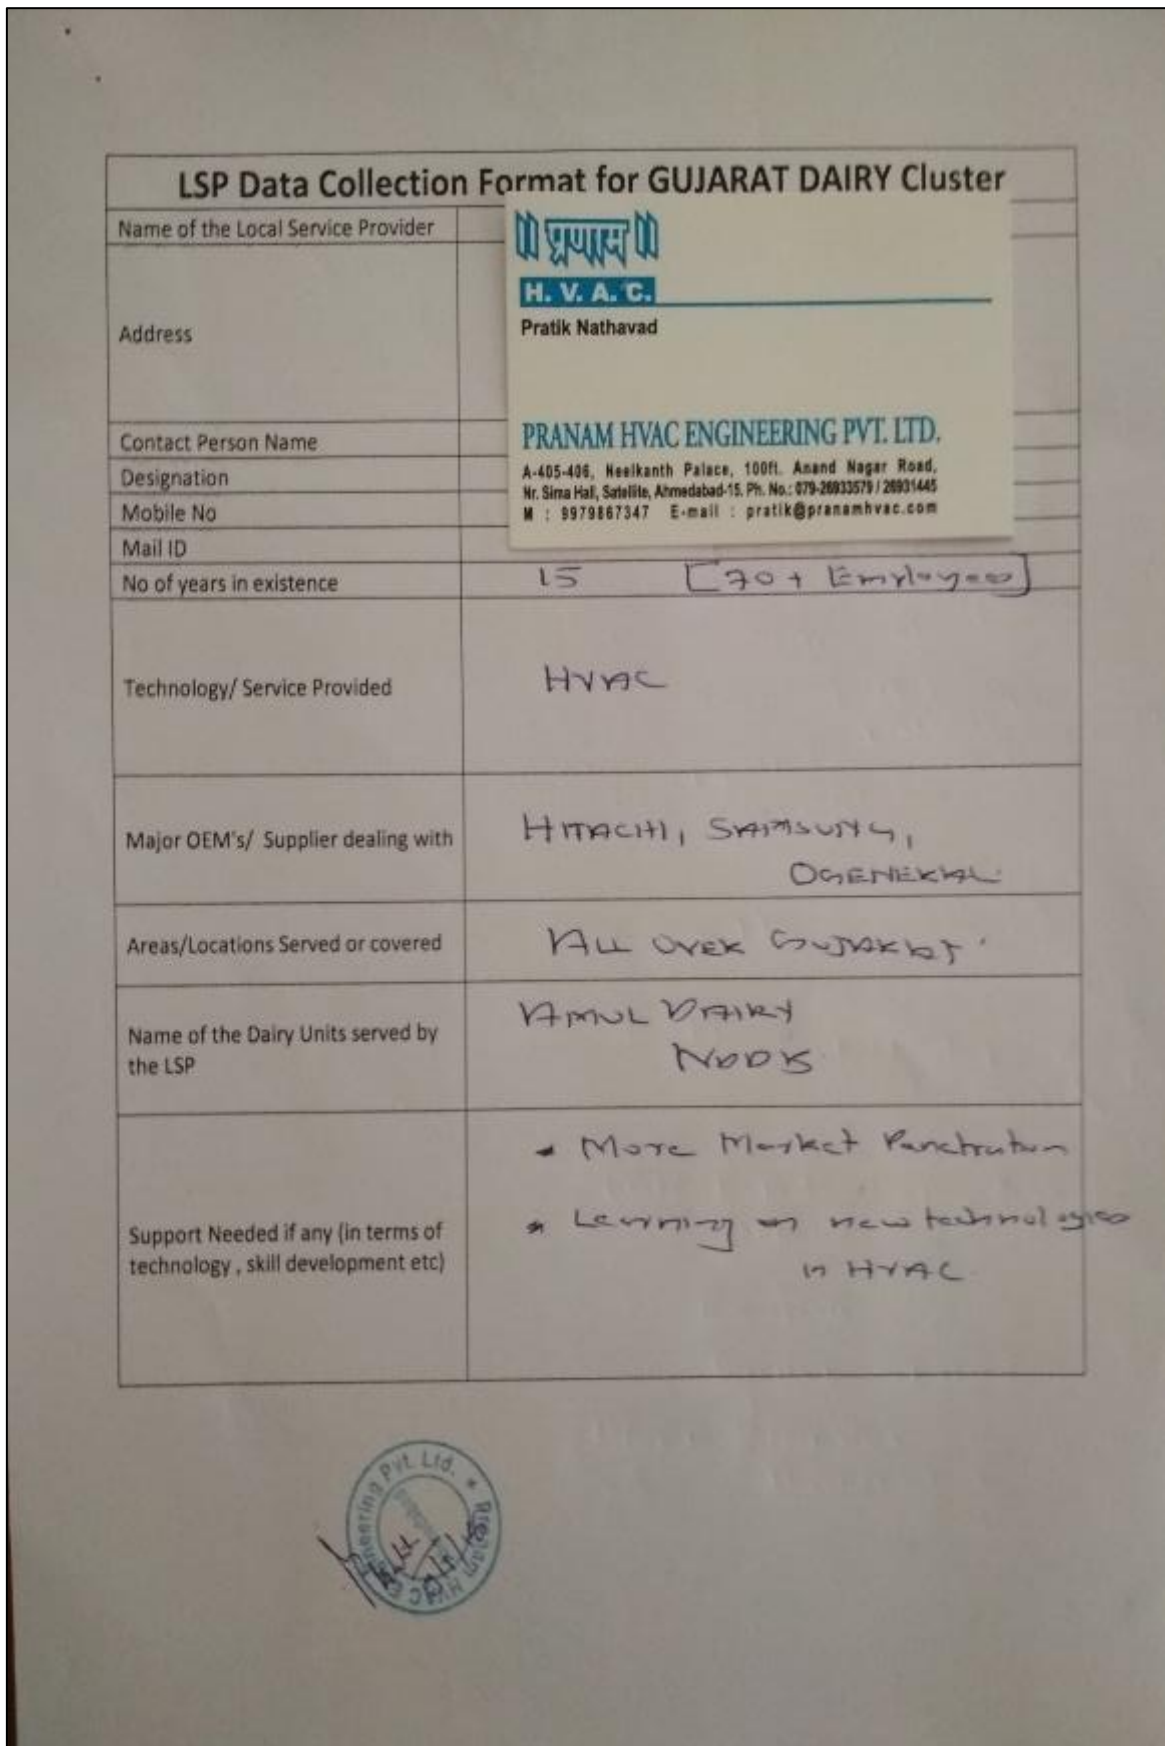 LSP Data Collection Format for GUJARAT DAIRY Cluster
Name of the Local Service Provider
॥ प्रणाम ॥
H. V. A. C.
Pratik Nathavad
Address
PRANAM HVAC ENGINEERING PVT. LTD.
A-405-406, Neelkanth Palace, 100ft. Anand Nagar Road,
Nr. Sima Hall, Satellite, Ahmedabad-15. Ph. No.: 079-26933579 / 26931445
M : 9979867347 E-mail : pratik@pranamhvac.com
Contact Person Name
Designation
Mobile No
Mail ID
No of years in existence 15 [70+ Employees]
Technology/ Service Provided HVAC
Major OEM's/ Supplier dealing with HITACHI, SAMSUNG,
OGENERAL
Areas/Locations Served or covered ALL OVER GUJARAT
Name of the Dairy Units served by
the LSP
AMUL DAIRY
NDDB
Support Needed if any (in terms of
technology , skill development etc)
* More Market Penetration
* Learning on new technologies
in HVAC
Pranam HVAC Engineering Pvt. Ltd. *